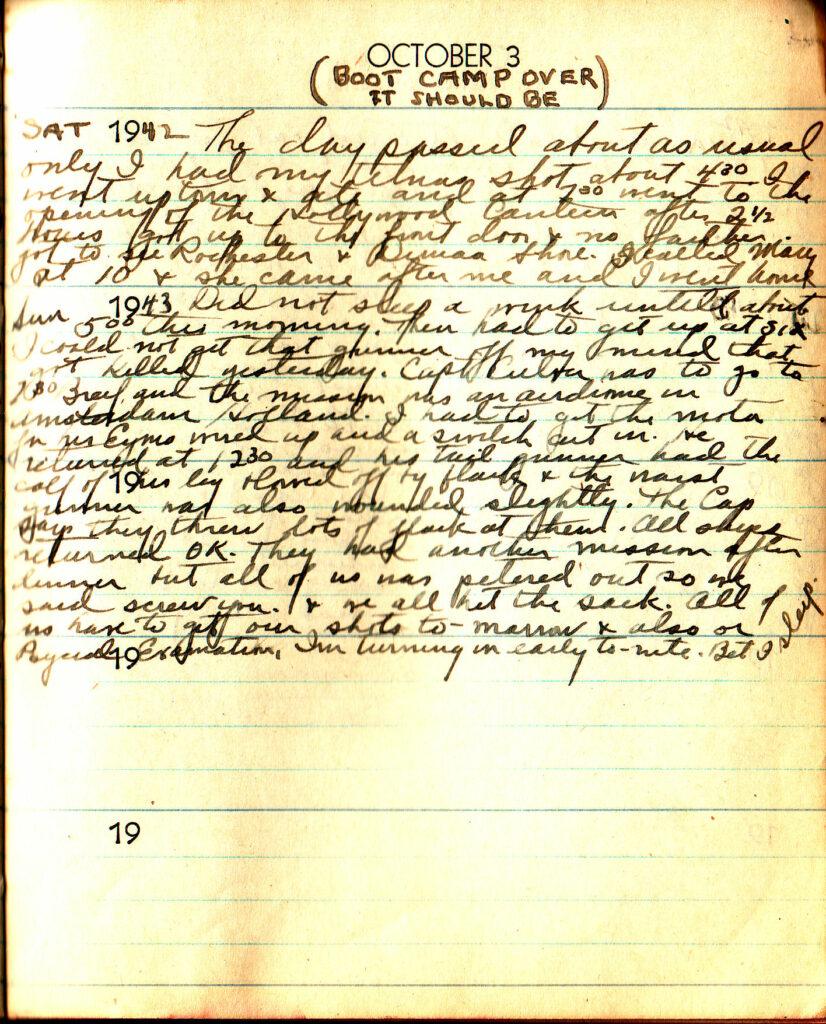 OCTOBER 3
(BOOT CAMP OVER
IT SHOULD BE)
SAT 1942 The day passed about as usual
only I had my tetnas shot about 4 30 I
went uptown & ate and at 7 00 went to the
opening of the Hollywood Canteen after 2 1/2
Hours got up to the front door & no farther.
got to see Rochester & Dinah Shore. I called Mary
at 10 & she came after me and I went home
Sun 1943 Did not sleep a wink until about
5 00 this morning. Then had to get up at six
I could not get that gunner off my mind that
got killed yesterday. Capt has to go to
7 30 Breif and the mission was an airdrome in
Amsterdam Holland. I had to get the motor
for his wired up and a switch cut in. He
returned at 1 2 30 and his tail gunner had the
calf of his leg blowed off by flack & the waist
19
gunner was also wounded slightly. The Cap
says they threw lots of flack at them. All ships
returned OK. They had another mission after
dinner but all of us was petered out so we
said screw you. & we all hit the sack. All of
us have to get our shots to-marrow & also or
Examation, I'm turning in early to-nite. Bet I sleep.
19
19